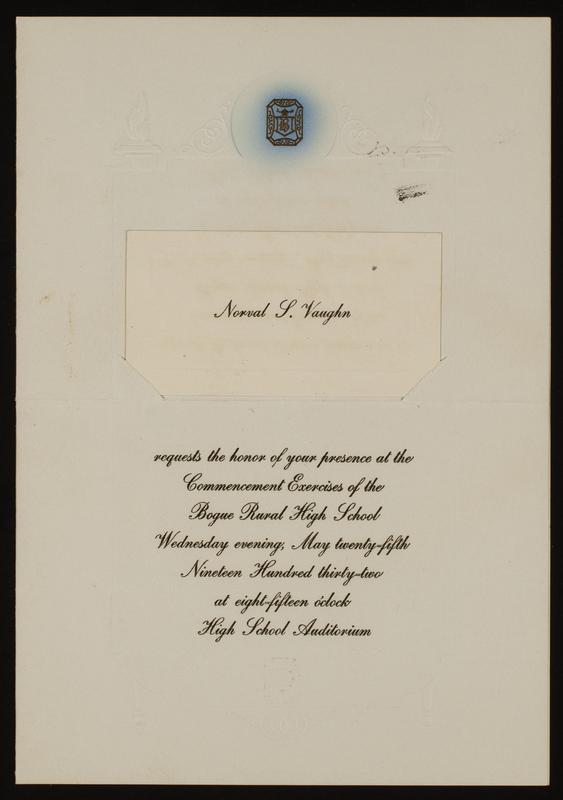 Norval S. Vaughn
requests the honor of your presence at the
Commencement Exercises of the
Bogue Rural High School
Wednesday evening, May twenty-fifth
Nineteen Hundred thirty-two
at eight-fifteen o'clock
High School Auditorium